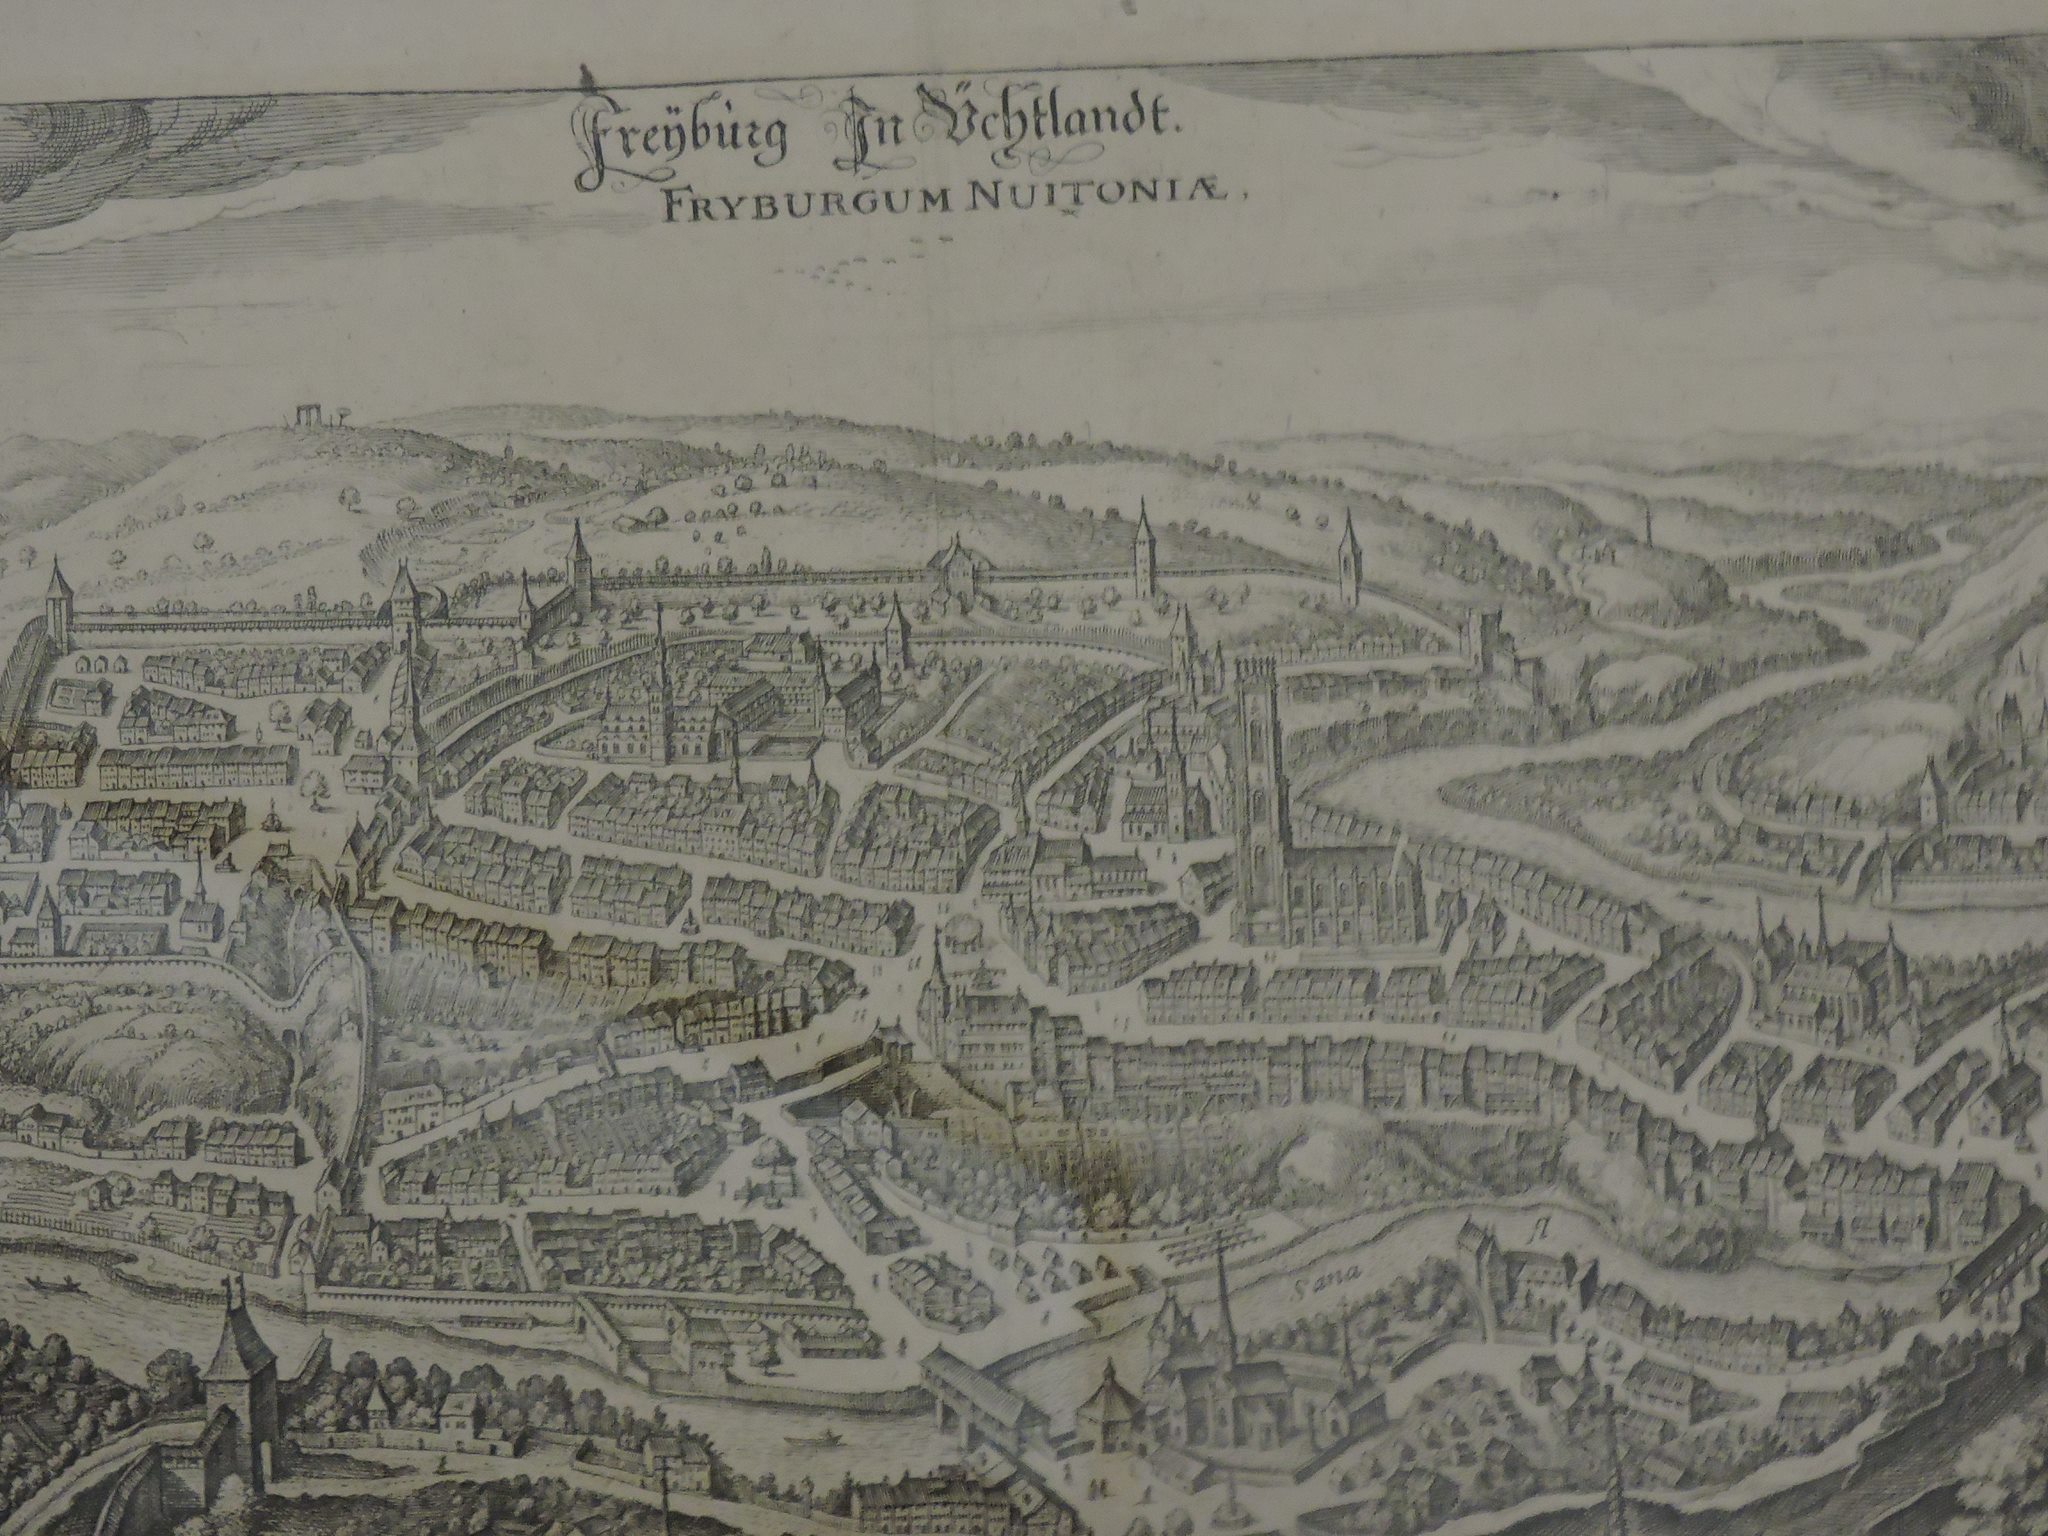 Freÿbùrg In Vchtlandt.
FRYBURGUM NUITONIÆ.
Sana fl